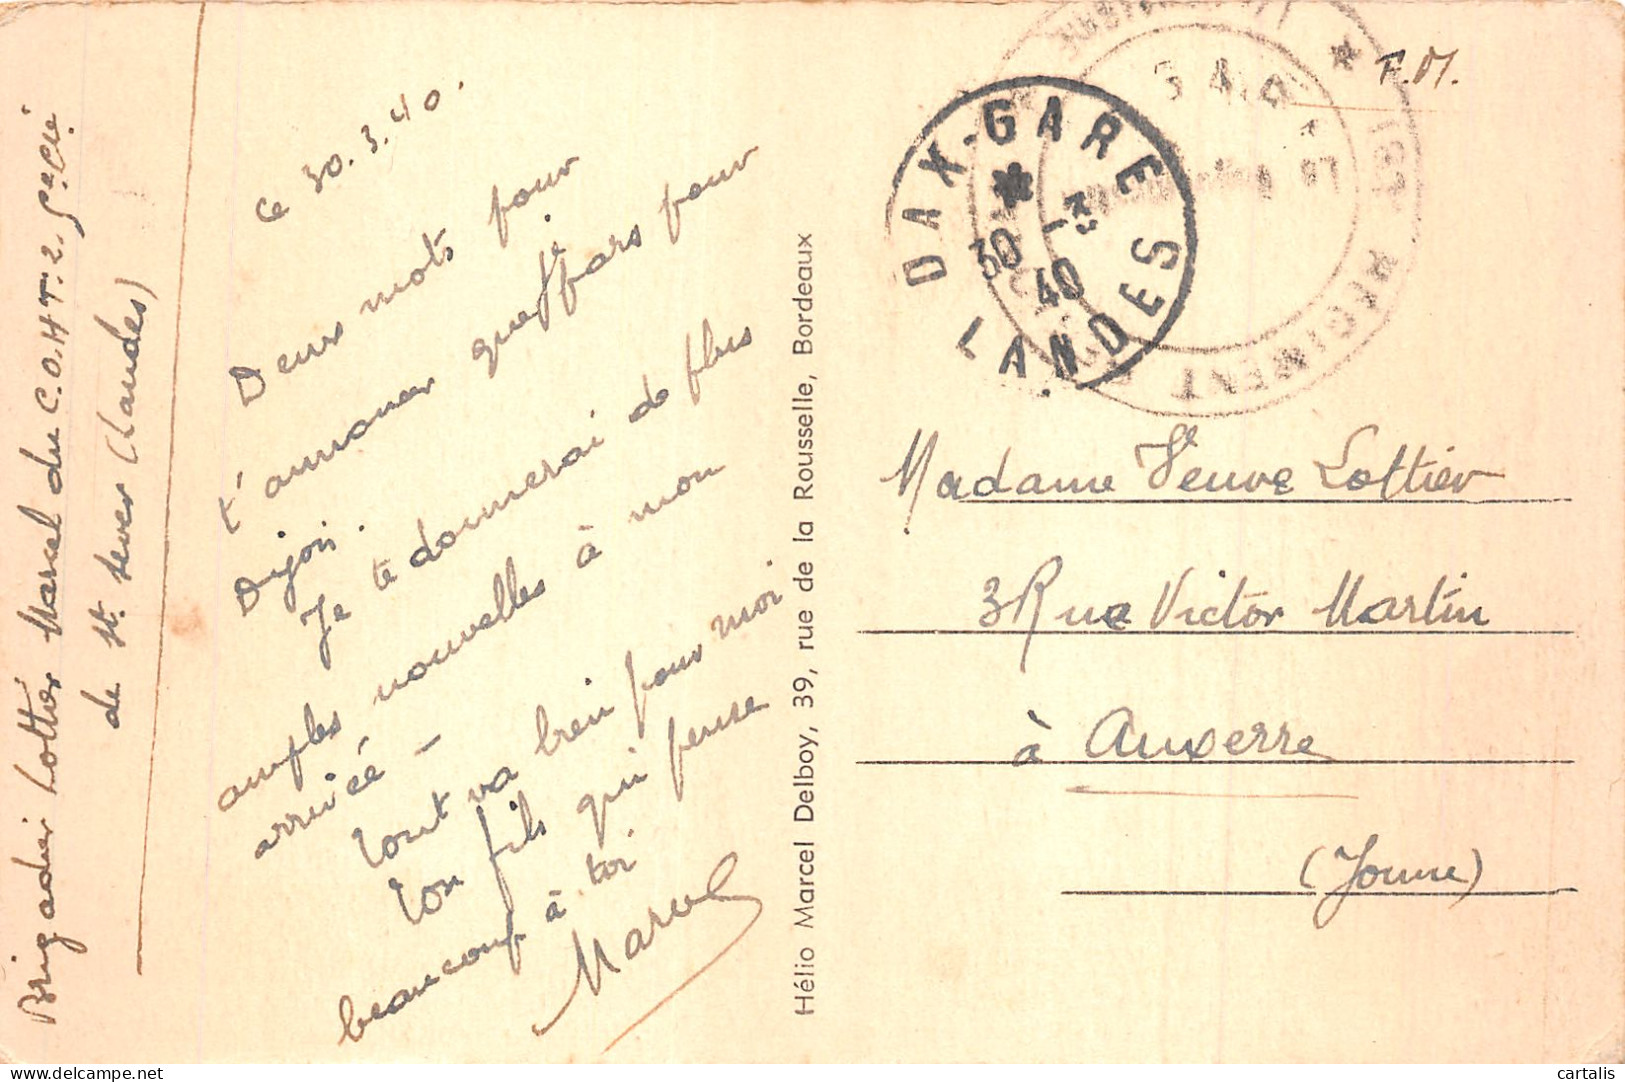 Brigadier Lottier Marcel du C.O.H.T.2.
de St. Sever (Landes)
Ce 30.3.40.
Deux mots pour
t'annoncer que je pars pour
Dijon.
Je te donnerai de plus
amples nouvelles à mon
arrivée –
Tout va bien pour moi
Ton fils qui pense
beaucoup à toi
Marcel
Hélio Marcel Delboy, 39, rue de la Rousselle, Bordeaux
F.M.
DAX-GARE
30 -3
40
LANDES
REGIMENT
Madame Veuve Lottier
3 Rue Victor Martin
à Auxerre
(Yonne)
cartalis
delcampe.net